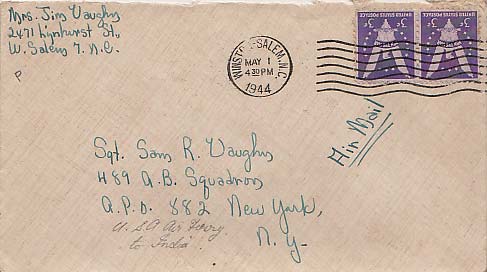 Mrs. Jim Vaughn
2471 Lynhurst St.,
W. Salem 7. N.C.
P
WINSTON-SALEM, N.C.
MAY 1
4 30 PM
1944
UNITED STATES POSTAGE
3¢
UNITED STATES POSTAGE
3¢
Air Mail
Sgt. Sam R. Vaughn
489 A.B. Squadron
A.P.O. 882 New York,
N.Y.
U.S.A Air Ferry
to India